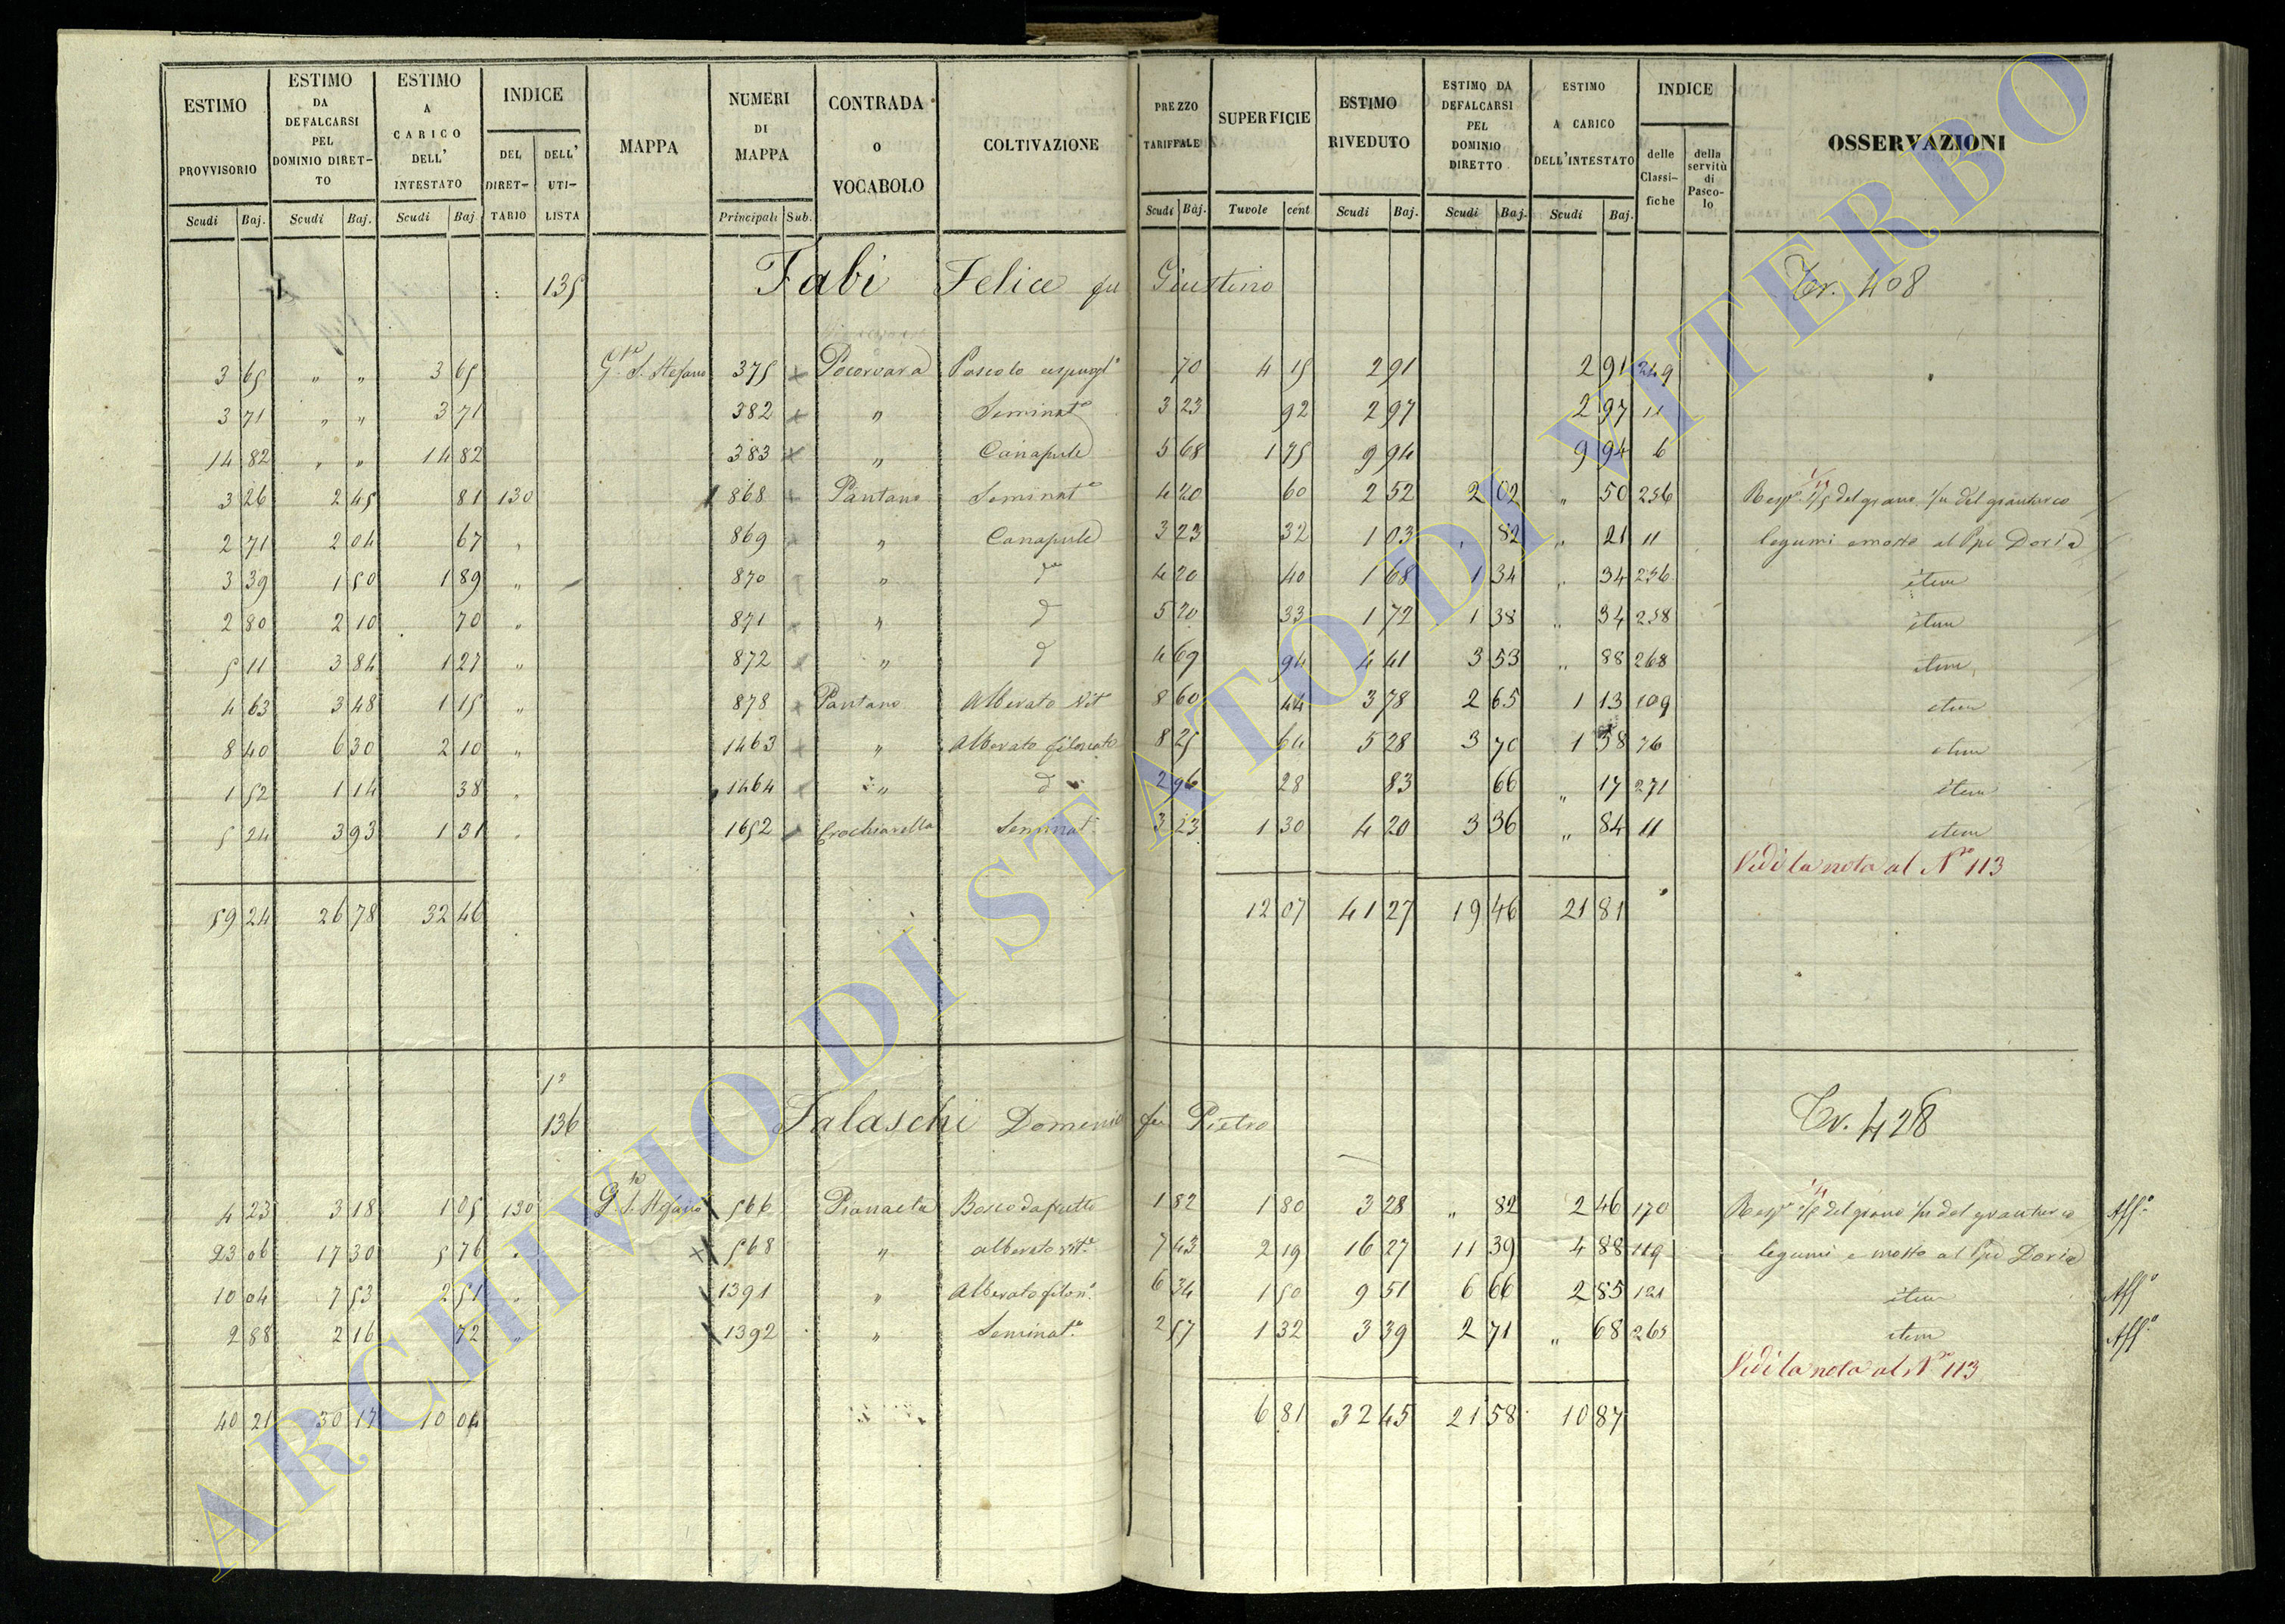 ESTIMO PROVVISORIO Scudi Baj. | ESTIMO DA DEFALCARSI PEL DOMINIO DIRETTO Scudi Baj. | ESTIMO A CARICO DELL' INTESTATO Scudi Baj. | INDICE DEL DIRETTARIO | DELL' UTILISTA | MAPPA | NUMERI DI MAPPA Principali Sub. | CONTRADA O VOCABOLO | COLTIVAZIONE | PREZZO TARIFFALE Scudi Baj. | SUPERFICIE Tavole cent | ESTIMO RIVEDUTO Scudi Baj. | ESTIMO DA DEFALCARSI PEL DOMINIO DIRETTO Scudi Baj. | ESTIMO A CARICO DELL'INTESTATO Scudi Baj. | INDICE delle Classifiche | della servitù di Pascolo | OSSERVAZIONI
135 Fabi Felice fu Giustino Tr. 408
3 65 " " 3 65 Gte S. Stefano 375 x Pocorvara Pascolo cespugl° 70 4 15 2 91 2 91 249
3 71 " " 3 71 382 x " Seminat° 3 23 92 2 97 2 97 11
14 82 " " 14 82 383 x " Canapule 5 68 1 75 9 94 9 94 6
3 26 2 45 81 130 868 x Pantano Seminat° 4 20 60 2 52 2 02 " 50 236 Resp. 1/5 del grano del granturco
2 71 2 04 67 " 869 " Canapule 3 23 32 1 03 " 82 " 21 11 legumi e mosto al Ppe Doria
3 39 1 50 1 89 " 870 " d° 4 20 40 1 68 1 34 " 34 236 item
2 80 2 10 70 " 871 x " d 5 20 33 1 72 1 38 " 34 238 item
5 11 3 84 1 27 " 872 x " d 4 69 94 4 41 3 53 " 88 268 item
4 63 3 48 1 15 " 878 x Pantano Alberato Vit° 8 60 44 3 78 2 65 1 13 109 item
8 40 6 30 2 10 " 1463 x " Alberato filonato 8 25 64 5 28 3 70 1 58 76 item
1 52 1 14 38 " 1464 x " d 2 96 28 83 66 " 17 271 item
5 24 3 93 1 31 " 1652 Crochiarella Seminat° 3 23 1 30 4 20 3 36 " 84 11 item
Vedi la nota al N° 113
59 24 26 78 32 46 12 07 41 27 19 46 21 81
1°
136 Falaschi Domenico fu Pietro Tr. 428
4 23 3 18 1 05 130 Gte S. Stefano 566 Pianaela Bosco da frutto 1 82 1 80 3 28 " 82 2 46 170 Resp. 1/5 del grano del granturco Aff.°
23 06 17 30 5 76 " x 568 " alberato vit.° 7 43 2 19 16 27 11 39 4 88 119 legumi e mosto al Ppe Doria
10 04 7 53 2 51 " 1391 " Alberato filon.° 6 34 1 50 9 51 6 66 2 85 121 item Aff°
2 88 2 16 72 " 1392 " Seminat.° 2 57 1 32 3 39 2 71 " 68 265 item Aff.°
Vedi la nota al N° 113
40 21 30 17 10 04 6 81 32 45 21 58 10 87
ARCHIVIO DI STATO DI VITERBO